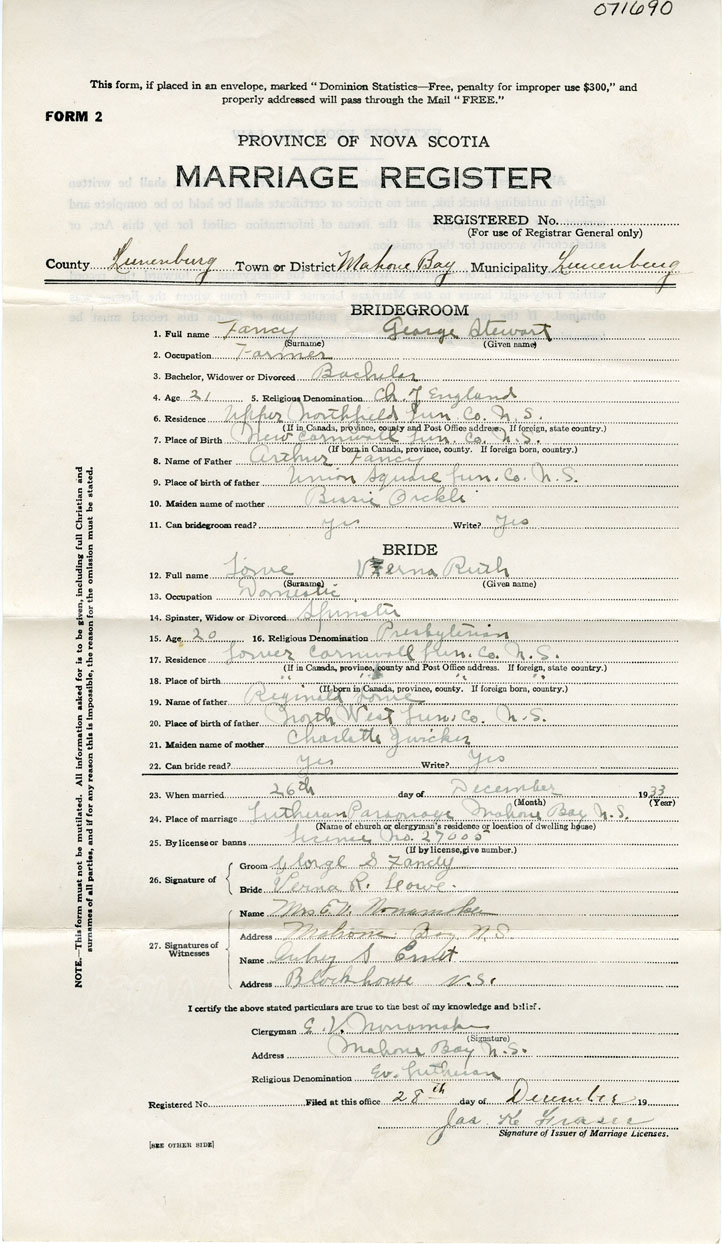 071690
This form, if placed in an envelope, marked "Dominion Statistics—Free, penalty for improper use $300," and
properly addressed will pass through the Mail "FREE."
FORM 2
PROVINCE OF NOVA SCOTIA
MARRIAGE REGISTER
REGISTERED No.
(For use of Registrar General only)
County Lunenburg Town or District Mahone Bay Municipality Lunenburg
BRIDEGROOM
1. Full name Fancy George Stewart
(Surname) (Given name)
2. Occupation Farmer
3. Bachelor, Widower or Divorced Bachelor
4. Age 21 5. Religious Denomination Ch. of England
6. Residence Upper Northfield Lun. Co. N.S.
(If in Canada, province, county and Post Office address. If foreign, state country.)
7. Place of Birth New Cornwall Lun. Co. N.S.
(If born in Canada, province, county. If foreign born, country.)
8. Name of Father Arthur Fancy
9. Place of birth of father Union Square Lun. Co. N.S.
10. Maiden name of mother Bessie
11. Can bridegroom read? yes Write? yes
BRIDE
12. Full name Lowe Verna Ruth
(Surname) (Given name)
13. Occupation Domestic
14. Spinster, Widow or Divorced Spinster
15. Age 20 16. Religious Denomination Presbyterian
17. Residence Lower Cornwall Lun. Co. N.S.
(If in Canada, province, county and Post Office address. If foreign, state country.)
18. Place of birth " " " "
(If born in Canada, province, county. If foreign born, country.)
19. Name of father Reginald Lowe
20. Place of birth of father North West Lun. Co. N.S.
21. Maiden name of mother Charlotte Zwicker
22. Can bride read? yes Write? yes
23. When married 26th day of December 1933
(Month) (Year)
24. Place of marriage Lutheran Parsonage Mahone Bay N.S.
(Name of church or clergyman's residence or location of dwelling house)
25. By license or banns License No. 27005
(If by license, give number.)
26. Signature of
Groom George S Fancy
Bride Verna R. Lowe.
27. Signatures of Witnesses
Name Mrs E.V. Nonamaker
Address Mahone Bay N.S.
Name Aubrey S Ernst
Address Blockhouse N.S.
I certify the above stated particulars are true to the best of my knowledge and belief.
Clergyman E. V. Nonamaker
(Signature)
Address Mahone Bay N.S.
Religious Denomination Ev. Lutheran
Registered No. Filed at this office 28th day of December 19
Jas. K. Fraser
Signature of Issuer of Marriage Licenses.
[SEE OTHER SIDE]
NOTE.—This form must not be mutilated. All information asked for is to be given, including full Christian and
surnames of all parties, and if for any reason this is impossible, the reason for the omission must be stated.